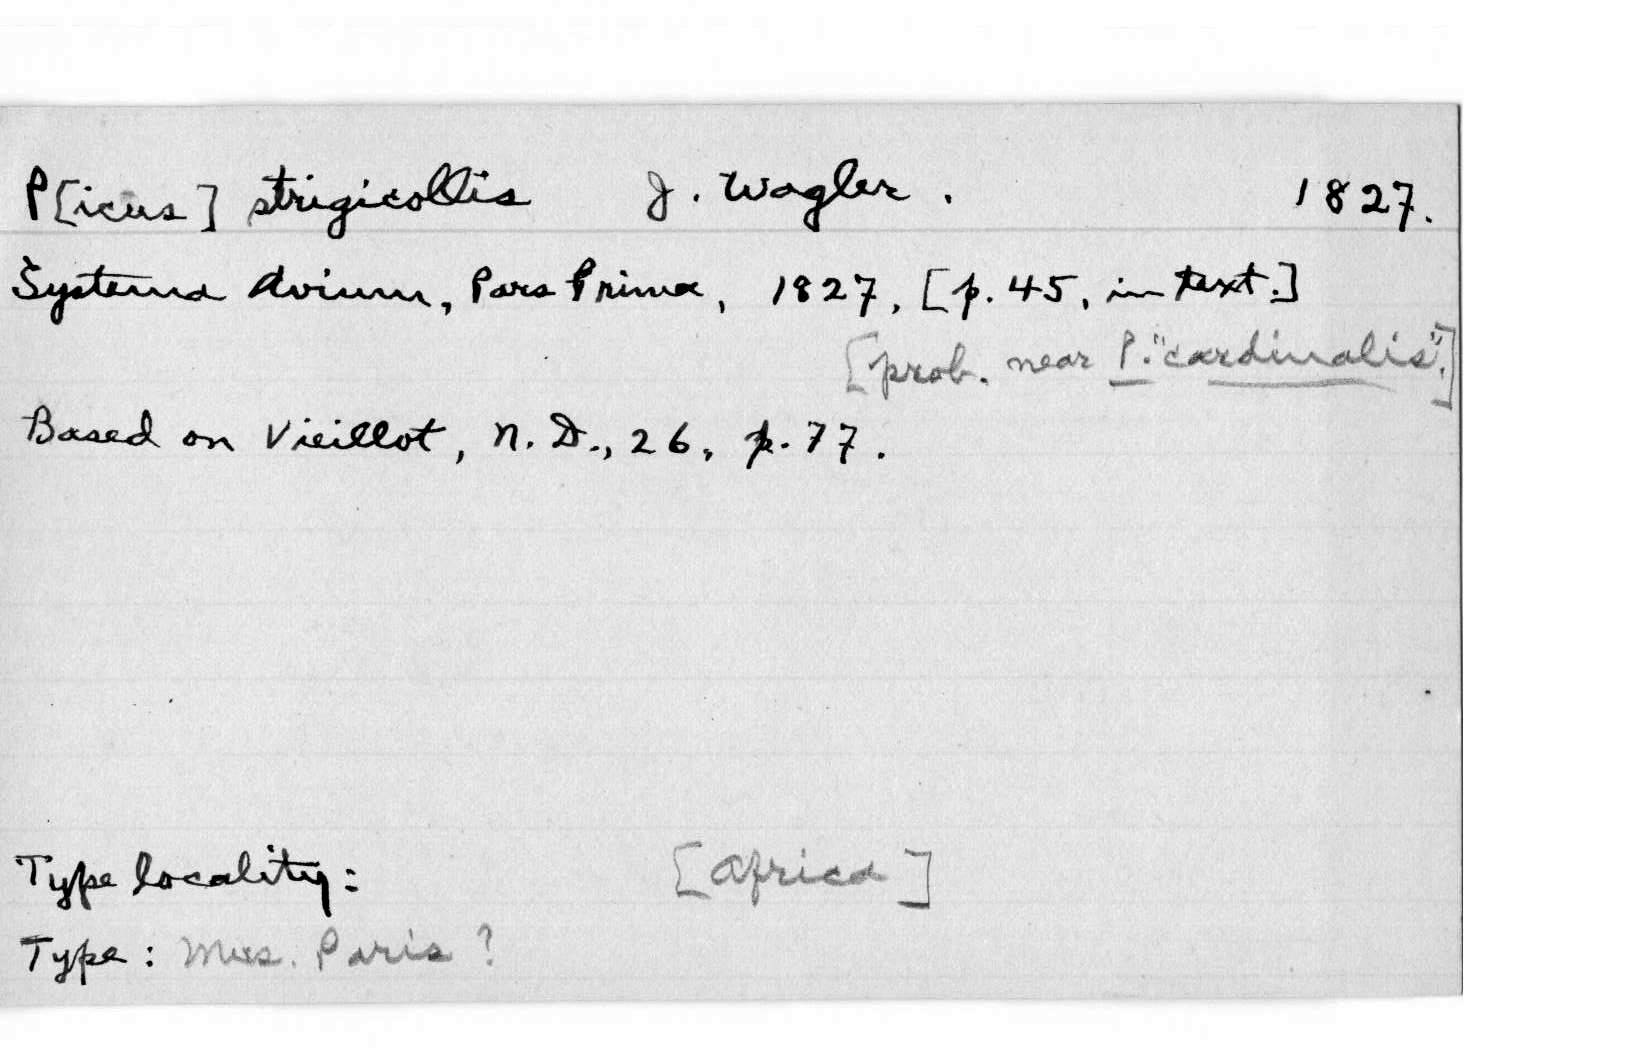 P[icus] strigicollis J. Wagler. 1827.
Systema Avium, Pars Prima, 1827, [p. 45, in text.]
[prob. near P. "cardinalis".]
Based on Vieillot, N. D., 26, p. 77.
Type locality: [Africa]
Type: Mus. Paris?